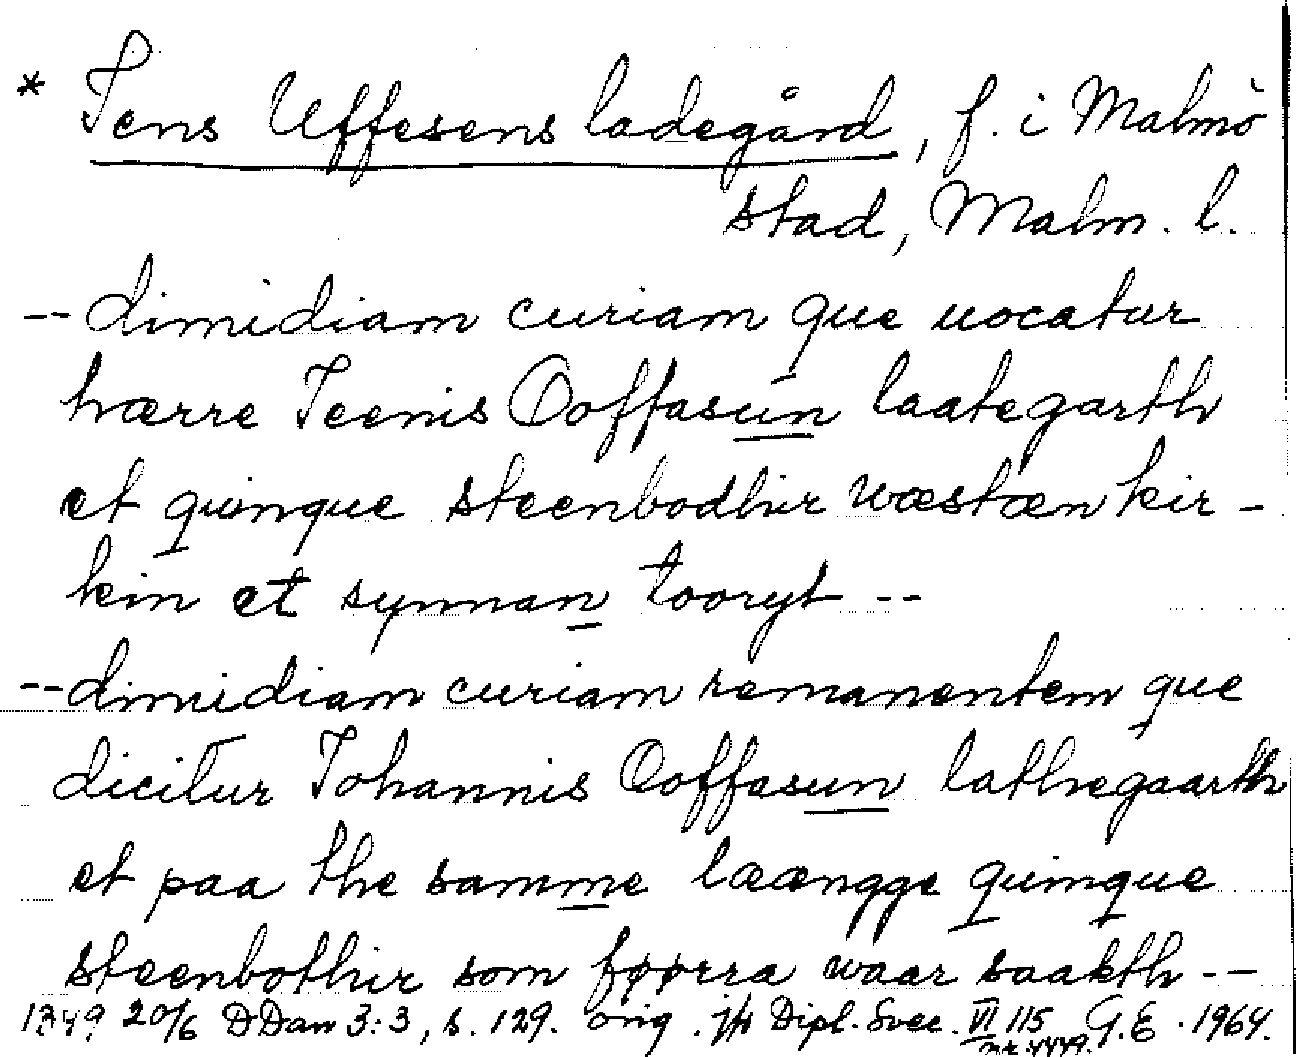 * Jens Uffesens ladegård, f. i Malmö
stad, Malm. l.
-- dimidiam curiam que uocatur
hærre Jeenis Ooffasun laategarth
et quinque steenbodhir wæstæn kir-
kin et synnan tooryt --
-- dimidiam curiam remanentem que
dicitur Johannis Ooffasun lathegaarth
et paa the samme læængge quinque
steenbothir som føørra waar saakth --
1349 20/6 DDan 3:3, s. 129. orig. jfr Dipl. Svec. VI 115 G.E. 1964.
nr. 4449.